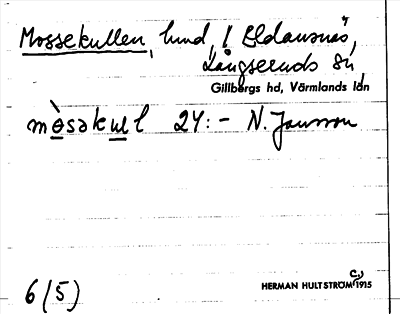 Mossekullen, lund, ! Eldausnäs,
Långseruds sn,
Gillbergs hd, Värmlands län
mòsəkul 24:- N. Jansson
6(5)
HERMAN HULTSTRÖM C:a 1915